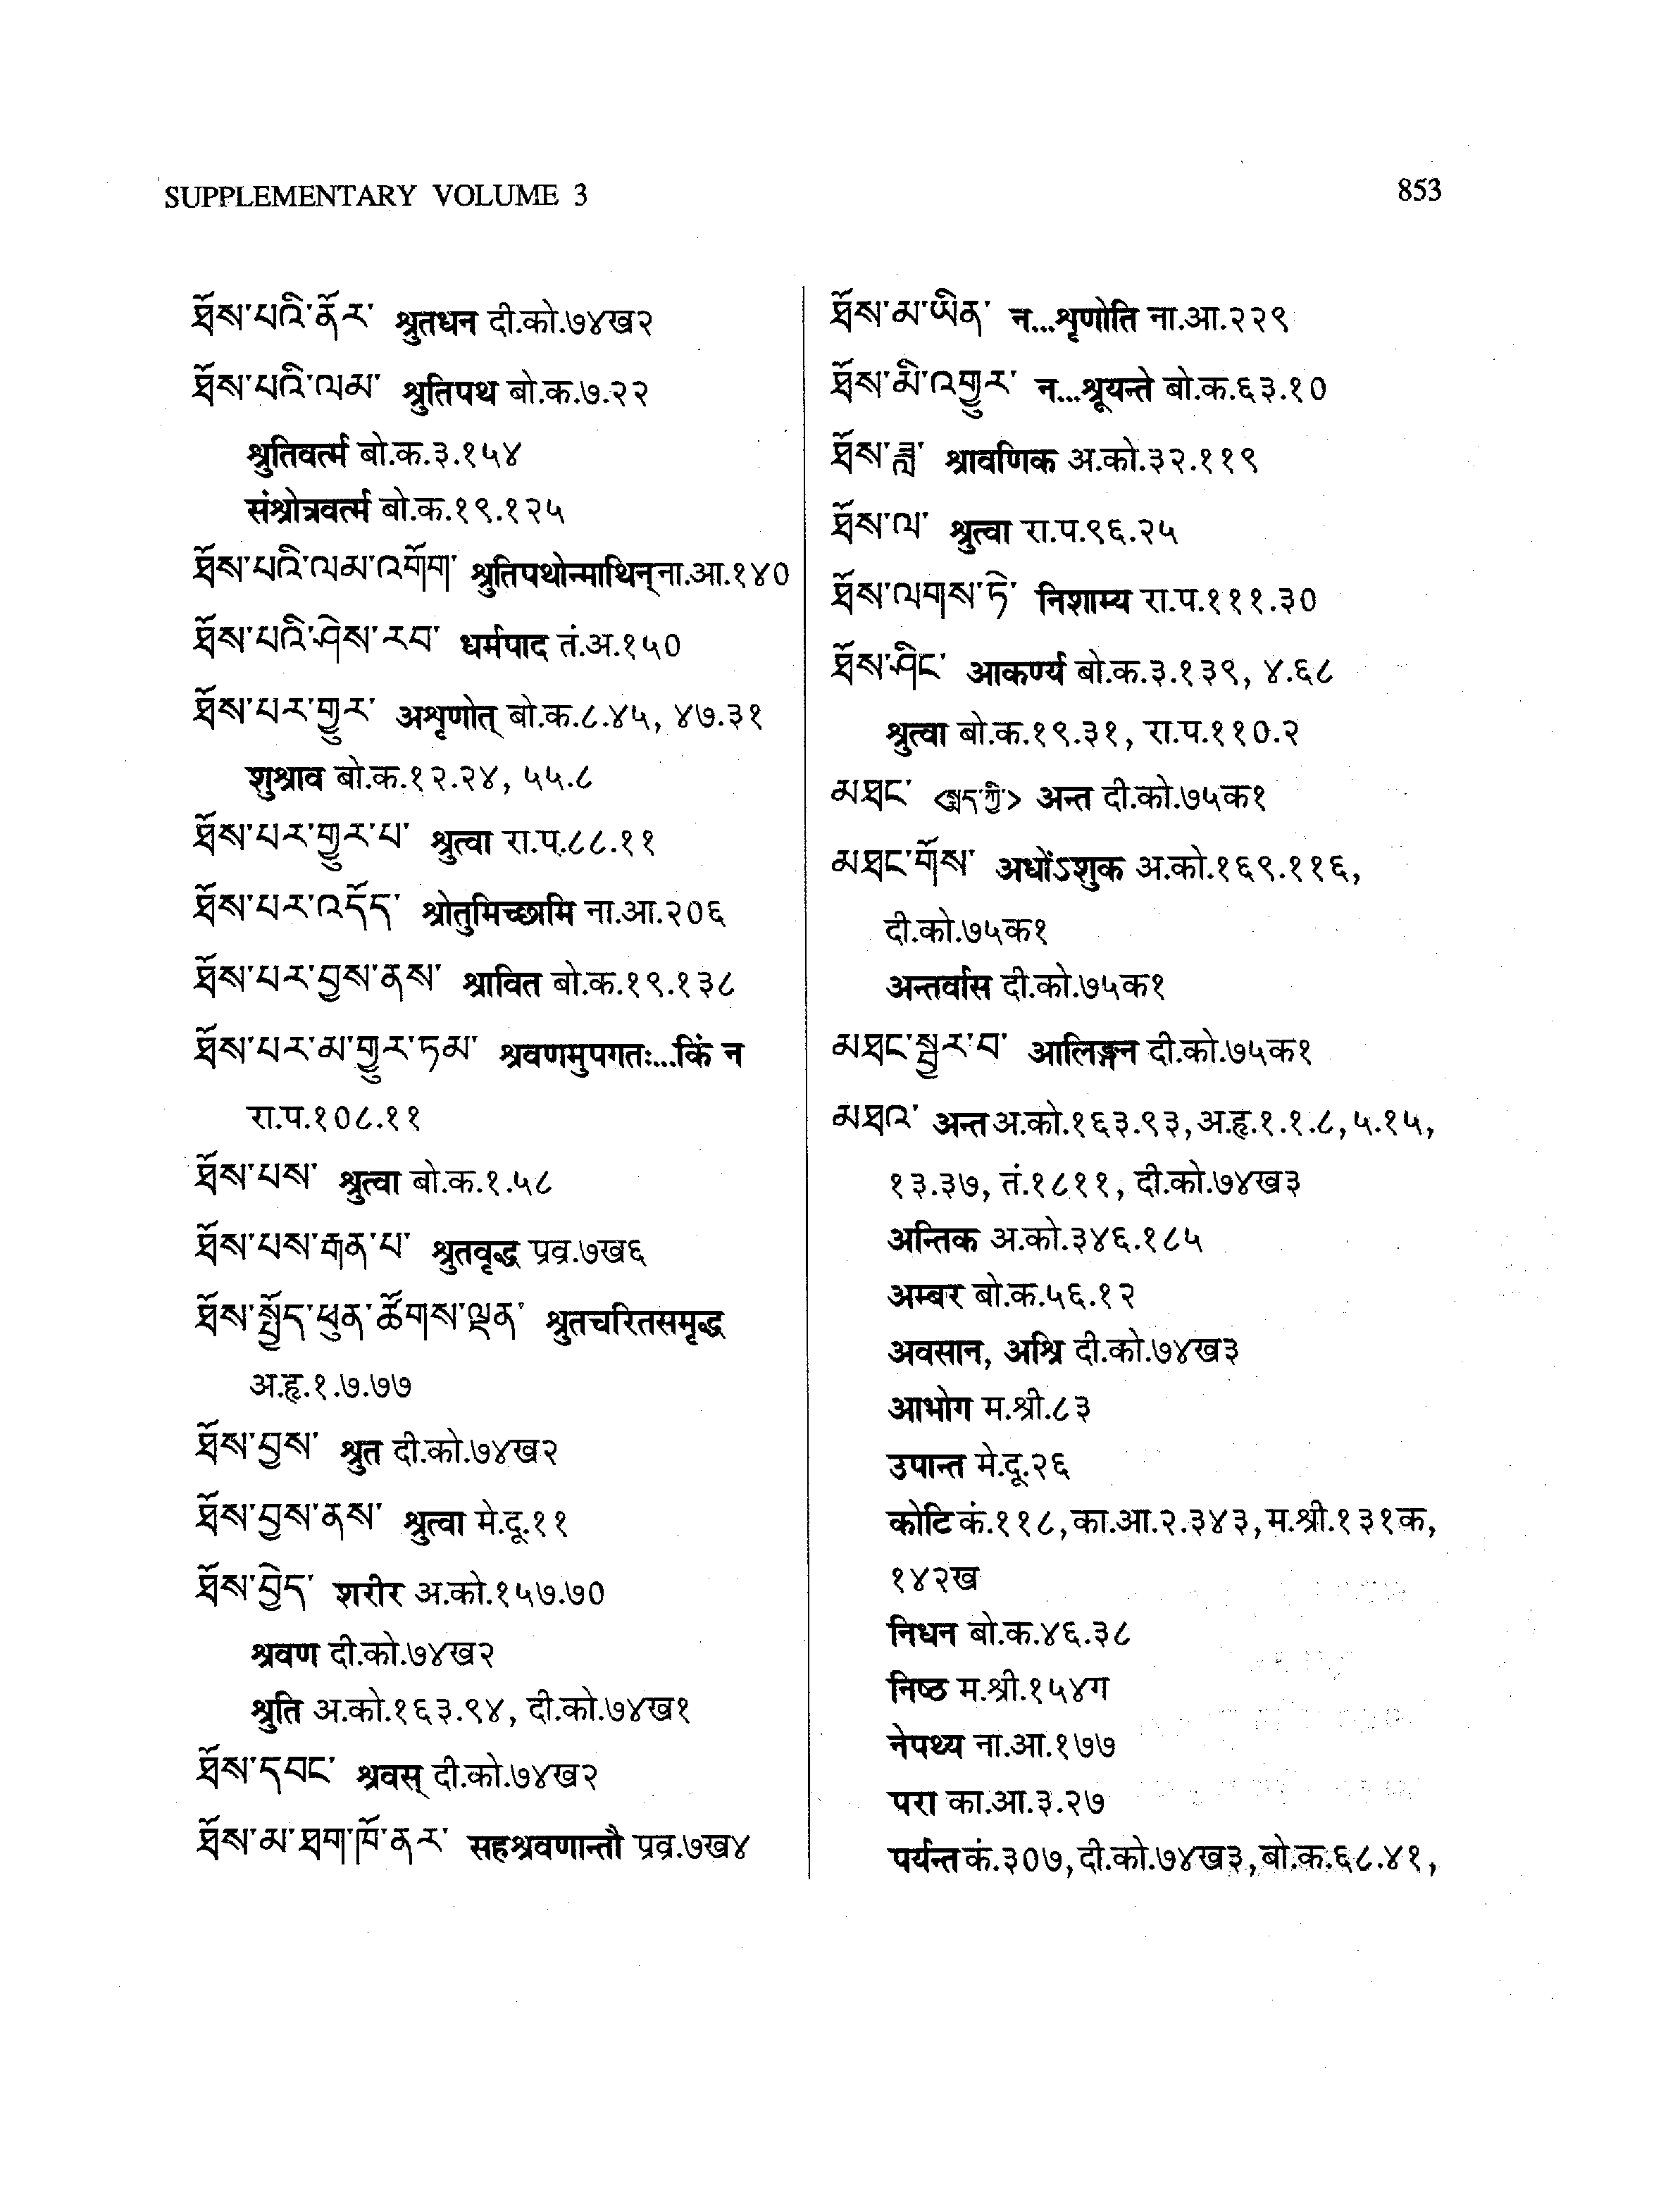 SUPPLEMENTARY VOLUME 3
853
ཐོས་པའི་ནོར་ श्रुतधन दी.को.७४ख२
ཐོས་པའི་ལམ་ श्रुतिपथ बो.क.७.२२
श्रुतिवर्त्म बो.क.३.१५४
संश्रोत्रवर्त्म बो.क.१९.१२५
ཐོས་པའི་ལམ་འགོག་ श्रुतिपथोन्माथिन् ना.आ.१४०
ཐོས་པའི་ཤེས་རབ་ धर्मपाद तं.अ.१५०
ཐོས་པར་གྱུར་ अशृणोत् बो.क.८.४५, ४७.३१
शुश्राव बो.क.१२.२४, ५५.८
ཐོས་པར་གྱུར་པ་ श्रुत्वा रा.प.८८.११
ཐོས་པར་འདོད་ श्रोतुमिच्छामि ना.आ.२०६
ཐོས་པར་བྱས་ནས་ श्रावित बो.क.१९.१३८
ཐོས་པར་མ་གྱུར་ཏམ་ श्रवणमुपगतः...किं न
रा.प.१०८.११
ཐོས་པས་ श्रुत्वा बो.क.१.५८
ཐོས་པས་རྒན་པ་ श्रुतवृद्ध प्रव्र.७ख६
ཐོས་སྤྱོད་ཕུན་ཚོགས་ལྡན་ श्रुतचरितसमृद्ध
अ.हृ.१.७.७७
ཐོས་བྱས་ श्रुत दी.को.७४ख२
ཐོས་བྱས་ནས་ श्रुत्वा मे.दू.११
ཐོས་བྱེད་ शरीर अ.को.१५७.७०
श्रवण दी.को.७४ख२
श्रुति अ.को.१६३.९४, दी.को.७४ख१
ཐོས་དབང་ श्रवस् दी.को.७४ख२
ཐོས་མ་ཐག་ཁོ་ནར་ सहश्रवणान्तौ प्रव्र.७ख४
ཐོས་མ་ཡིན་ न...शृणोति ना.आ.२२९
ཐོས་མི་འགྱུར་ न...श्रूयन्ते बो.क.६३.१०
ཐོས་ཟླ་ श्रावणिक अ.को.३२.११९
ཐོས་ལ་ श्रुत्वा रा.प.९६.२५
ཐོས་ལགས་ཏེ་ निशाम्य रा.प.१११.३०
ཐོས་ཤིང་ आकर्ण्य बो.क.३.१३९, ४.६८
श्रुत्वा बो.क.१९.३१, रा.प.११०.२
མཐང་ <སྨད་ཀྱི་> अन्त दी.को.७५क१
མཐང་གོས་ अधोंऽशुक अ.को.१६९.११६,
दी.को.७५क१
अन्तर्वास दी.को.७५क१
མཐང་སྦྱར་བ་ आलिङ्गन दी.को.७५क१
མཐའ་ अन्त अ.को.१६३.९३, अ.हृ.१.१.८, ५.१५,
१३.३७, तं.१८११, दी.को.७४ख३
अन्तिक अ.को.३४६.१८५
अम्बर बो.क.५६.१२
अवसान, अश्रि दी.को.७४ख३
आभोग म.श्री.८३
उपान्त मे.दू.२६
कोटि कं.११८, का.आ.२.३४३, म.श्री.१३१क,
१४२ख
निधन बो.क.४६.३८
निष्ठ म.श्री.१५४ग
नेपथ्य ना.आ.१७७
परा का.आ.३.२७
पर्यन्त कं.३०७, दी.को.७४ख३, बो.क.६८.४१,